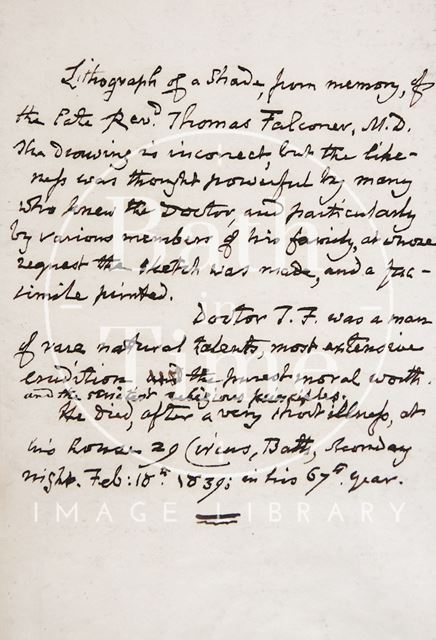 Lithograph of a Shade, from memory, of
the late Revd. Thomas Falconer, M.D.
The Drawing is incorrect, but the like-
ness was thought powerful by many
who knew the Doctor, and particularly
by various members of his family, at whose
request the sketch was made, and a fac-
simile printed.
Doctor T. F. was a man
of rare natural talents, most extensive
erudition and the purest moral worth.
and the strictest religious principles.
He Died, after a very short illness, at
his house 29 Circus, Bath, Monday
night. Feb: 18th 1839; in his 67th. year.
Bath
in
Time
IMAGE LIBRARY